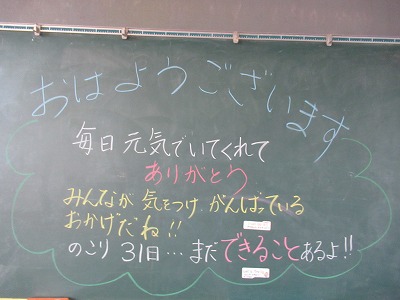 おはようございます
毎日元気でいてくれて
ありがとう
みんなが気をつけがんばっている
おかげだね!!
のこり31日…まだできることあるよ!!